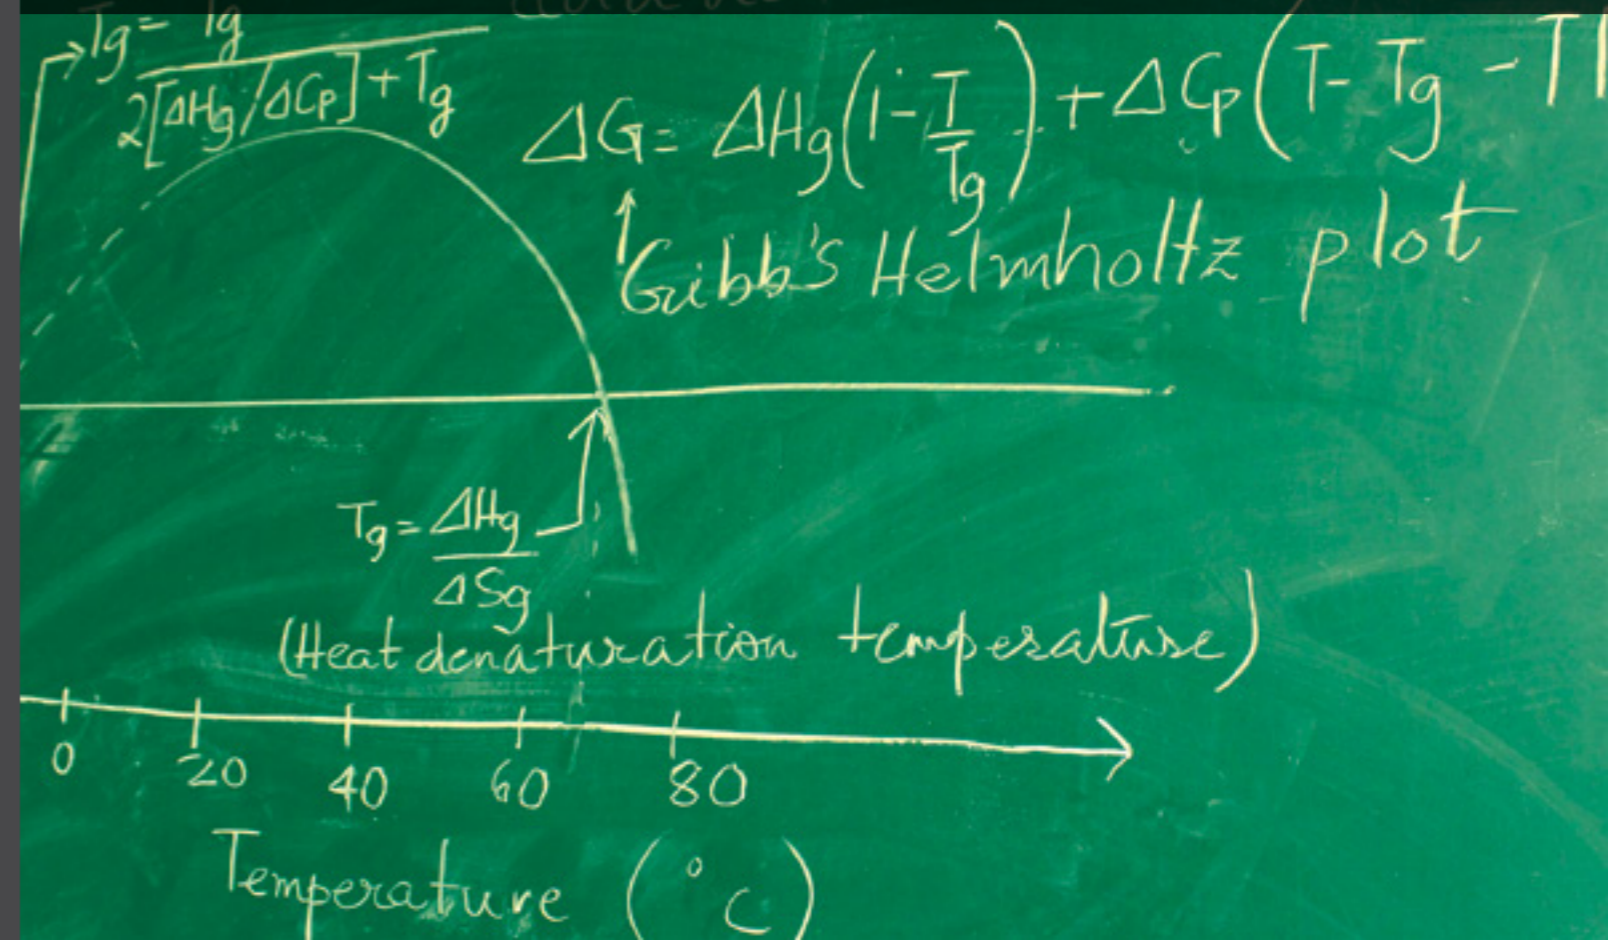 Tg = Tg
2[ΔHg/ΔCp] + Tg
ΔG = ΔHg(1 - T/Tg) + ΔCp(T - Tg - T
Gibb's Helmholtz plot
Tg = ΔHg
ΔSg
(Heat denaturation temperature)
0 20 40 60 80
Temperature (°C)